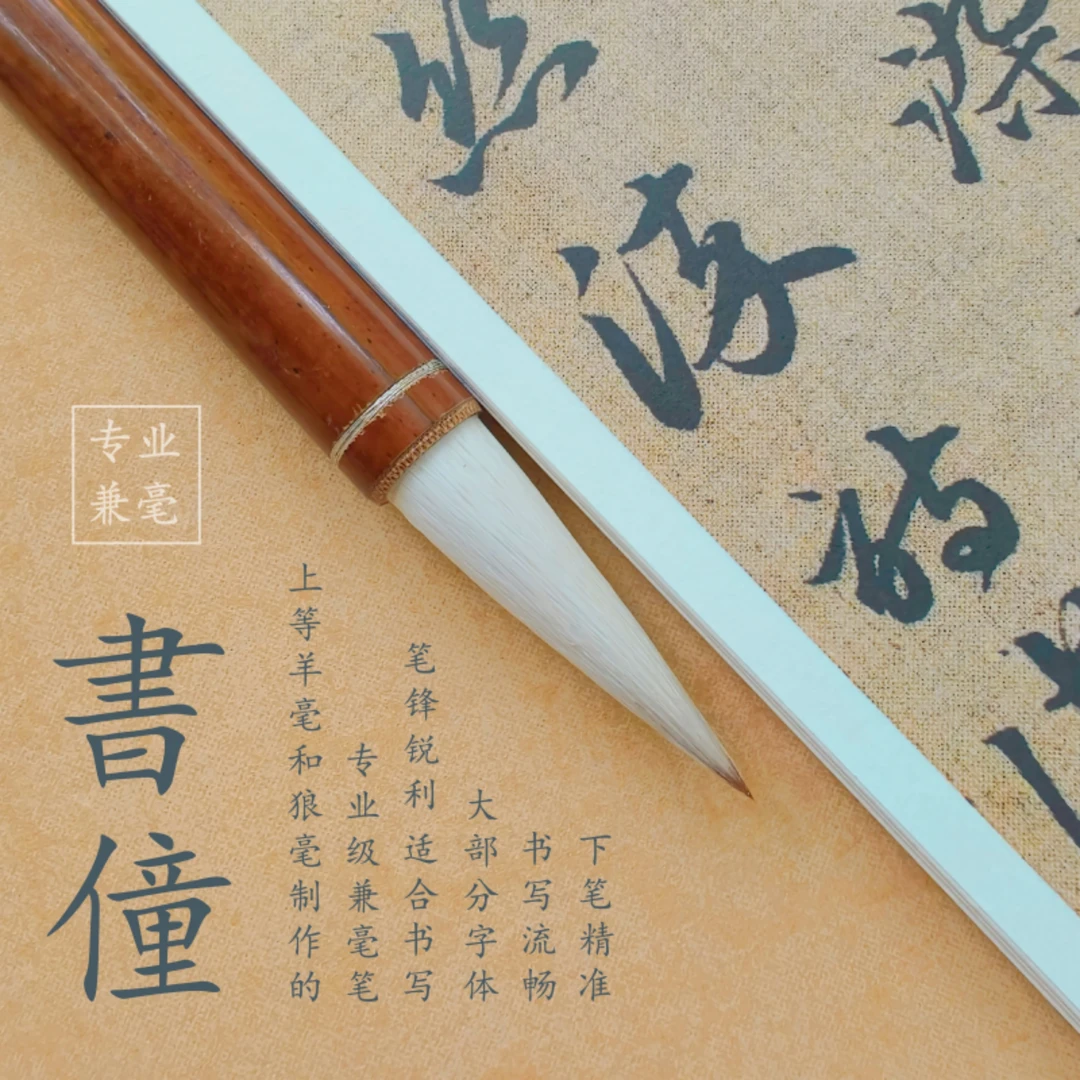 专业
兼毫
書僮
上等羊毫和狼毫制作的
专业级兼毫笔
笔锋锐利适合书写
大部分字体
书写流畅
下笔精准